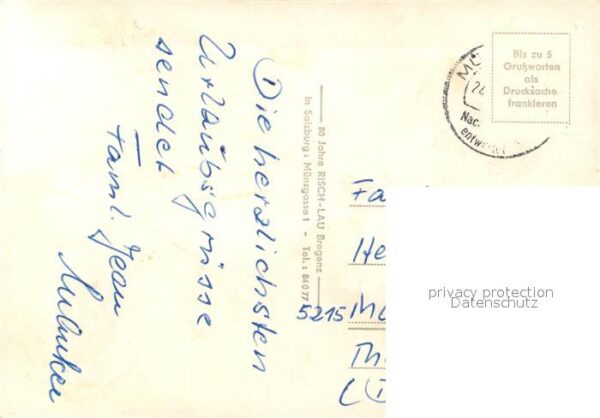 Die herzlichsten
Urlaubsgrüsse
sendet
Faml. Jean
80 Jahre RISCH-LAU Bregenz
in Salzburg: Münzgasse 1 - Tel.: 84077
Bis zu 5
Grußworten
als
Drucksache
frankieren
MÜ
24
Nac
entwertet
Fa
He
5215 Ma
Th
(D
privacy protection
Datenschutz